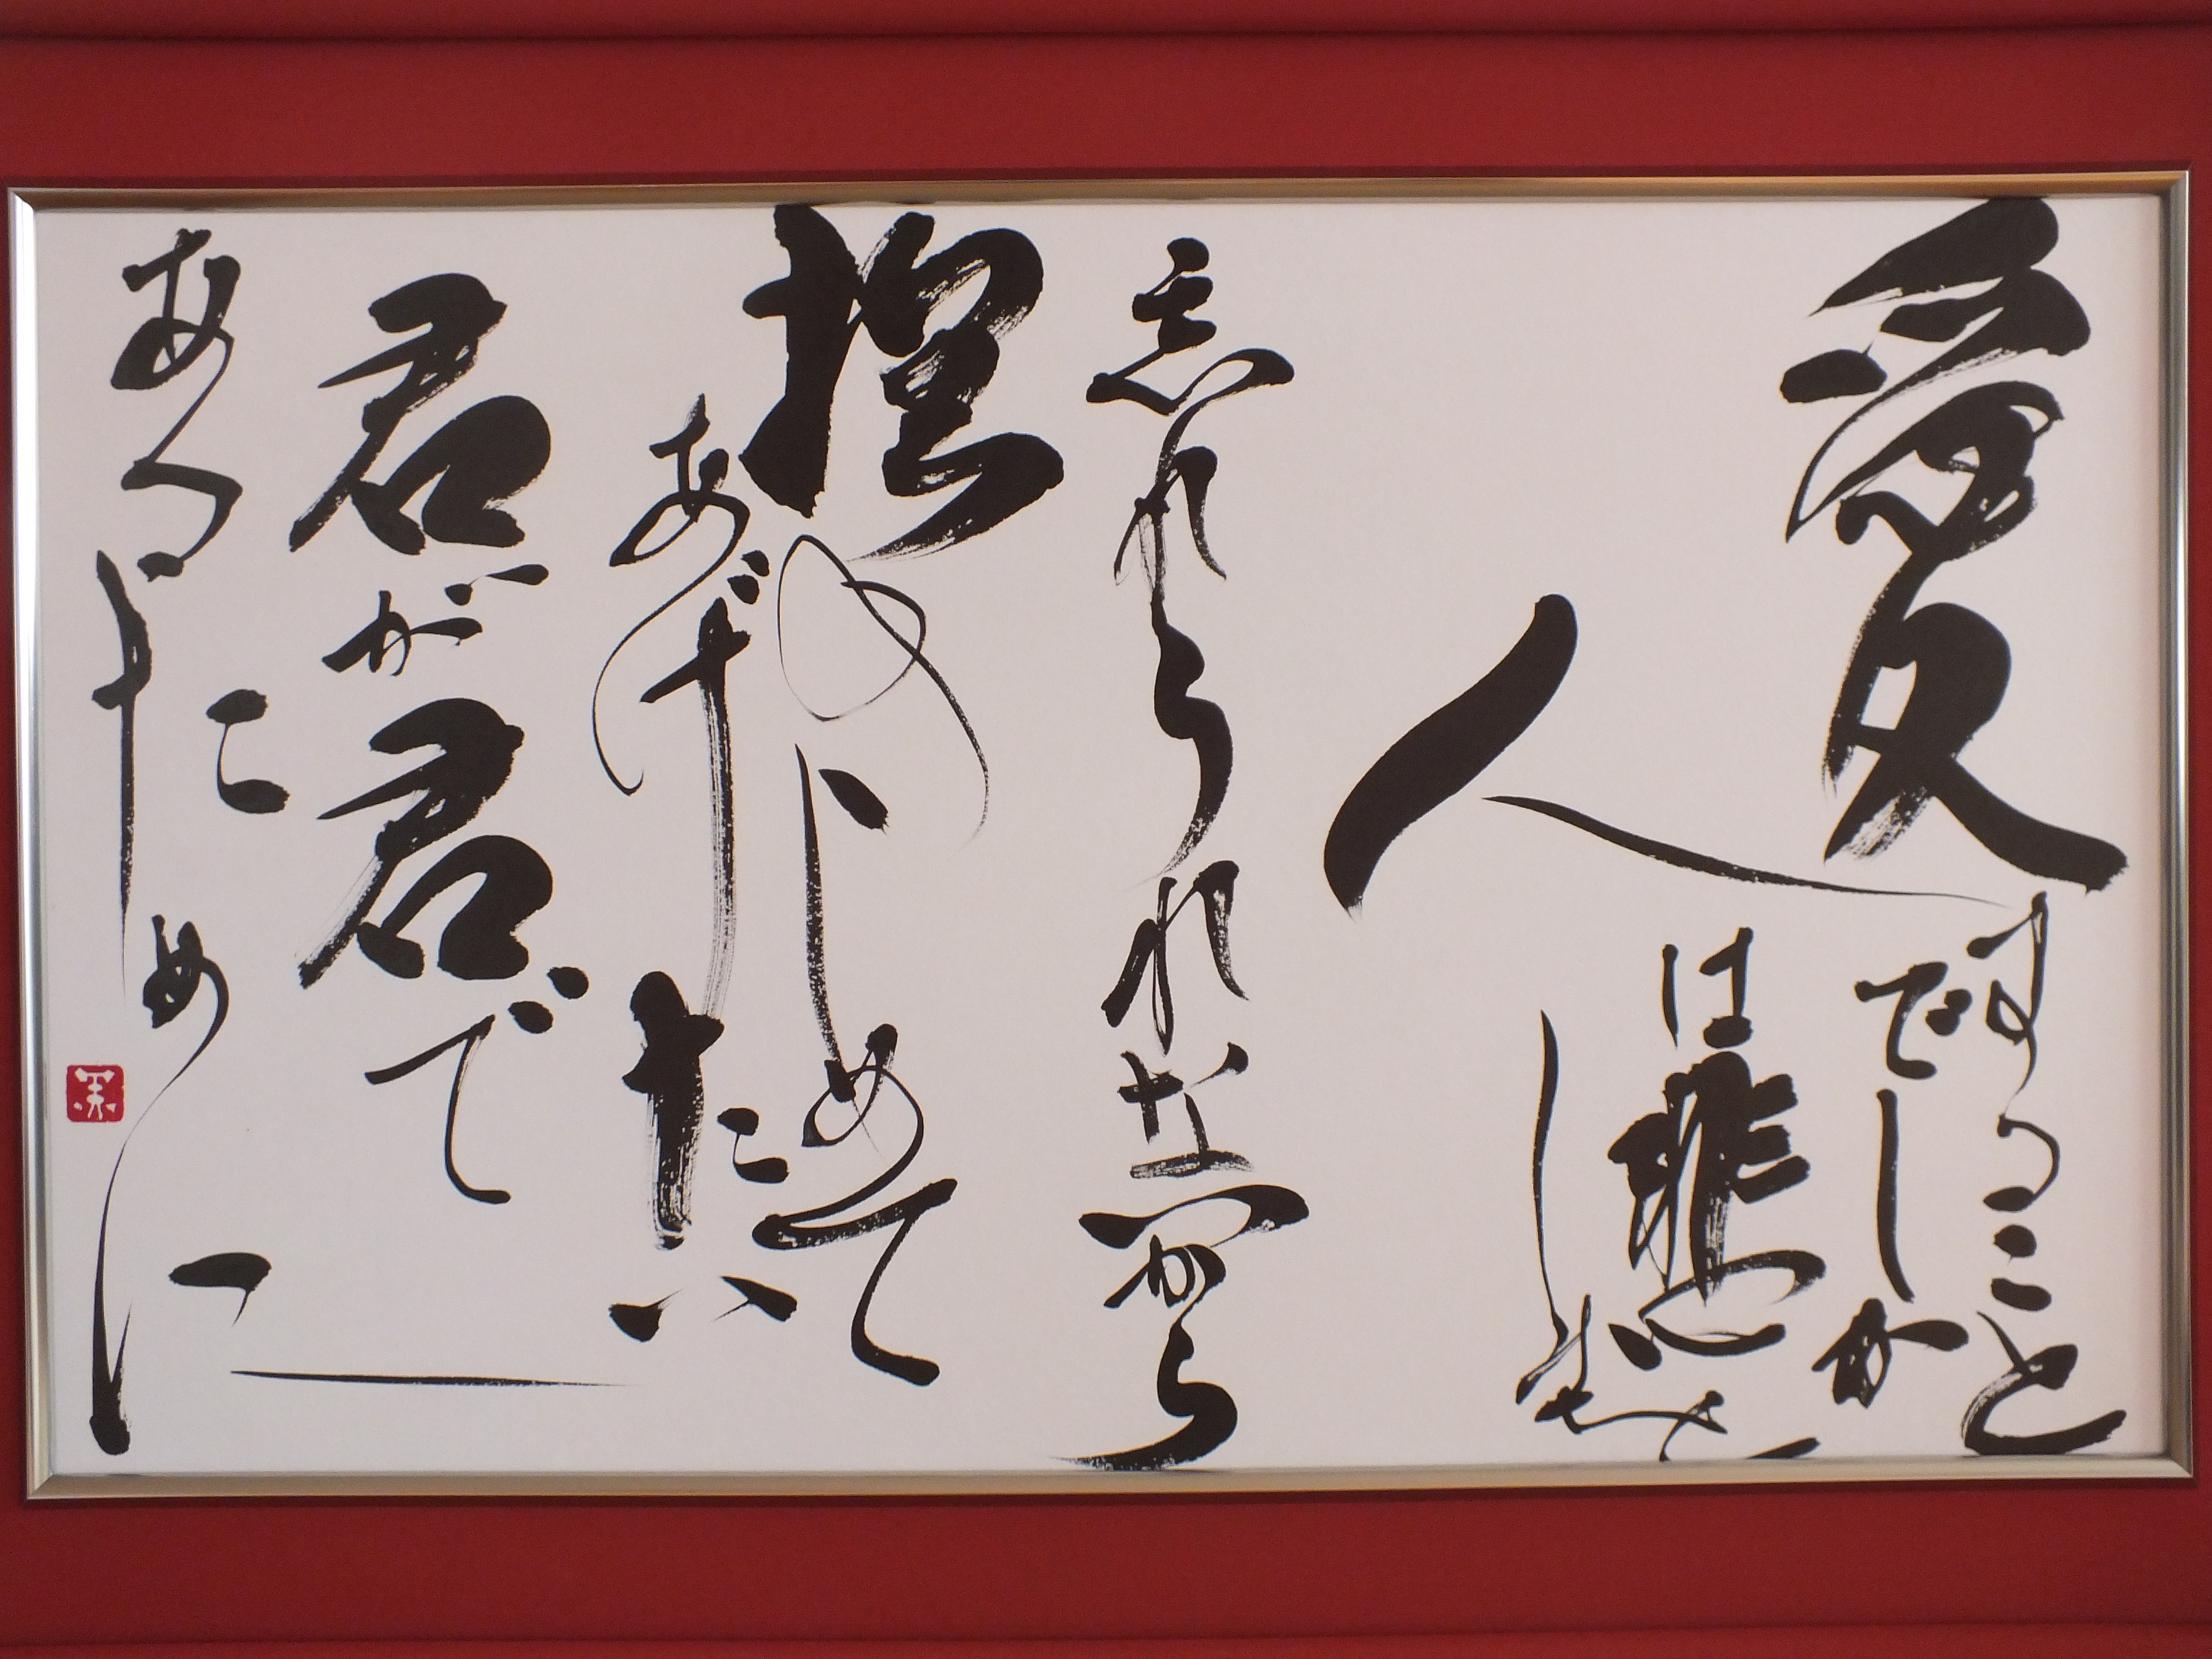 愛すること
でしか
人は悲
しみを
忘れられないから
抱きしめて
あげたい
君が君で
あるために